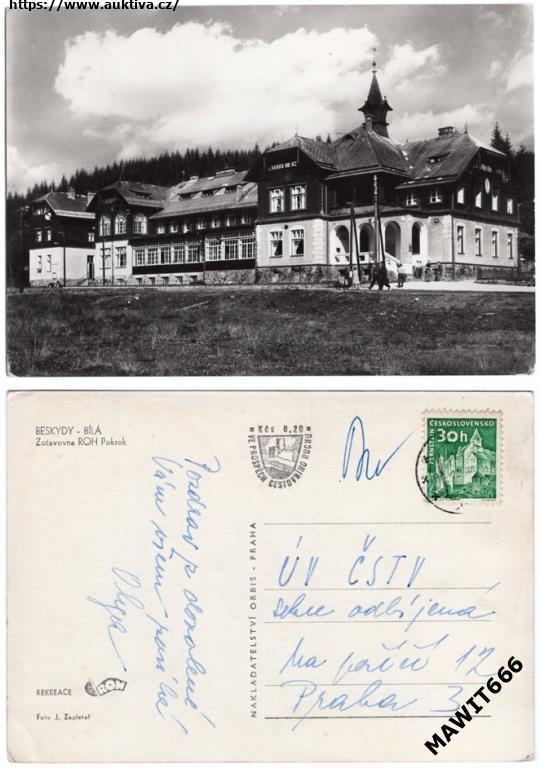 https://www.auktiva.cz/
BESKYDY - BÍLÁ
Zotavovna ROH Pokrok
Kčs 0,20
VE PROSPĚCH CESTOVNÍHO RUCHU
ČESKOSLOVENSKO
30h
PERNŠTEJN
Pozdrav z dovolené
Vám všem posílá
Olga
NAKLADATELSTVÍ ORBIS - PRAHA
ÚV ČSTV
sekce odbíjená
Na poříčí 12
Praha 3
REKREACE
ROH
Foto J. Zapletal
MAWIT666